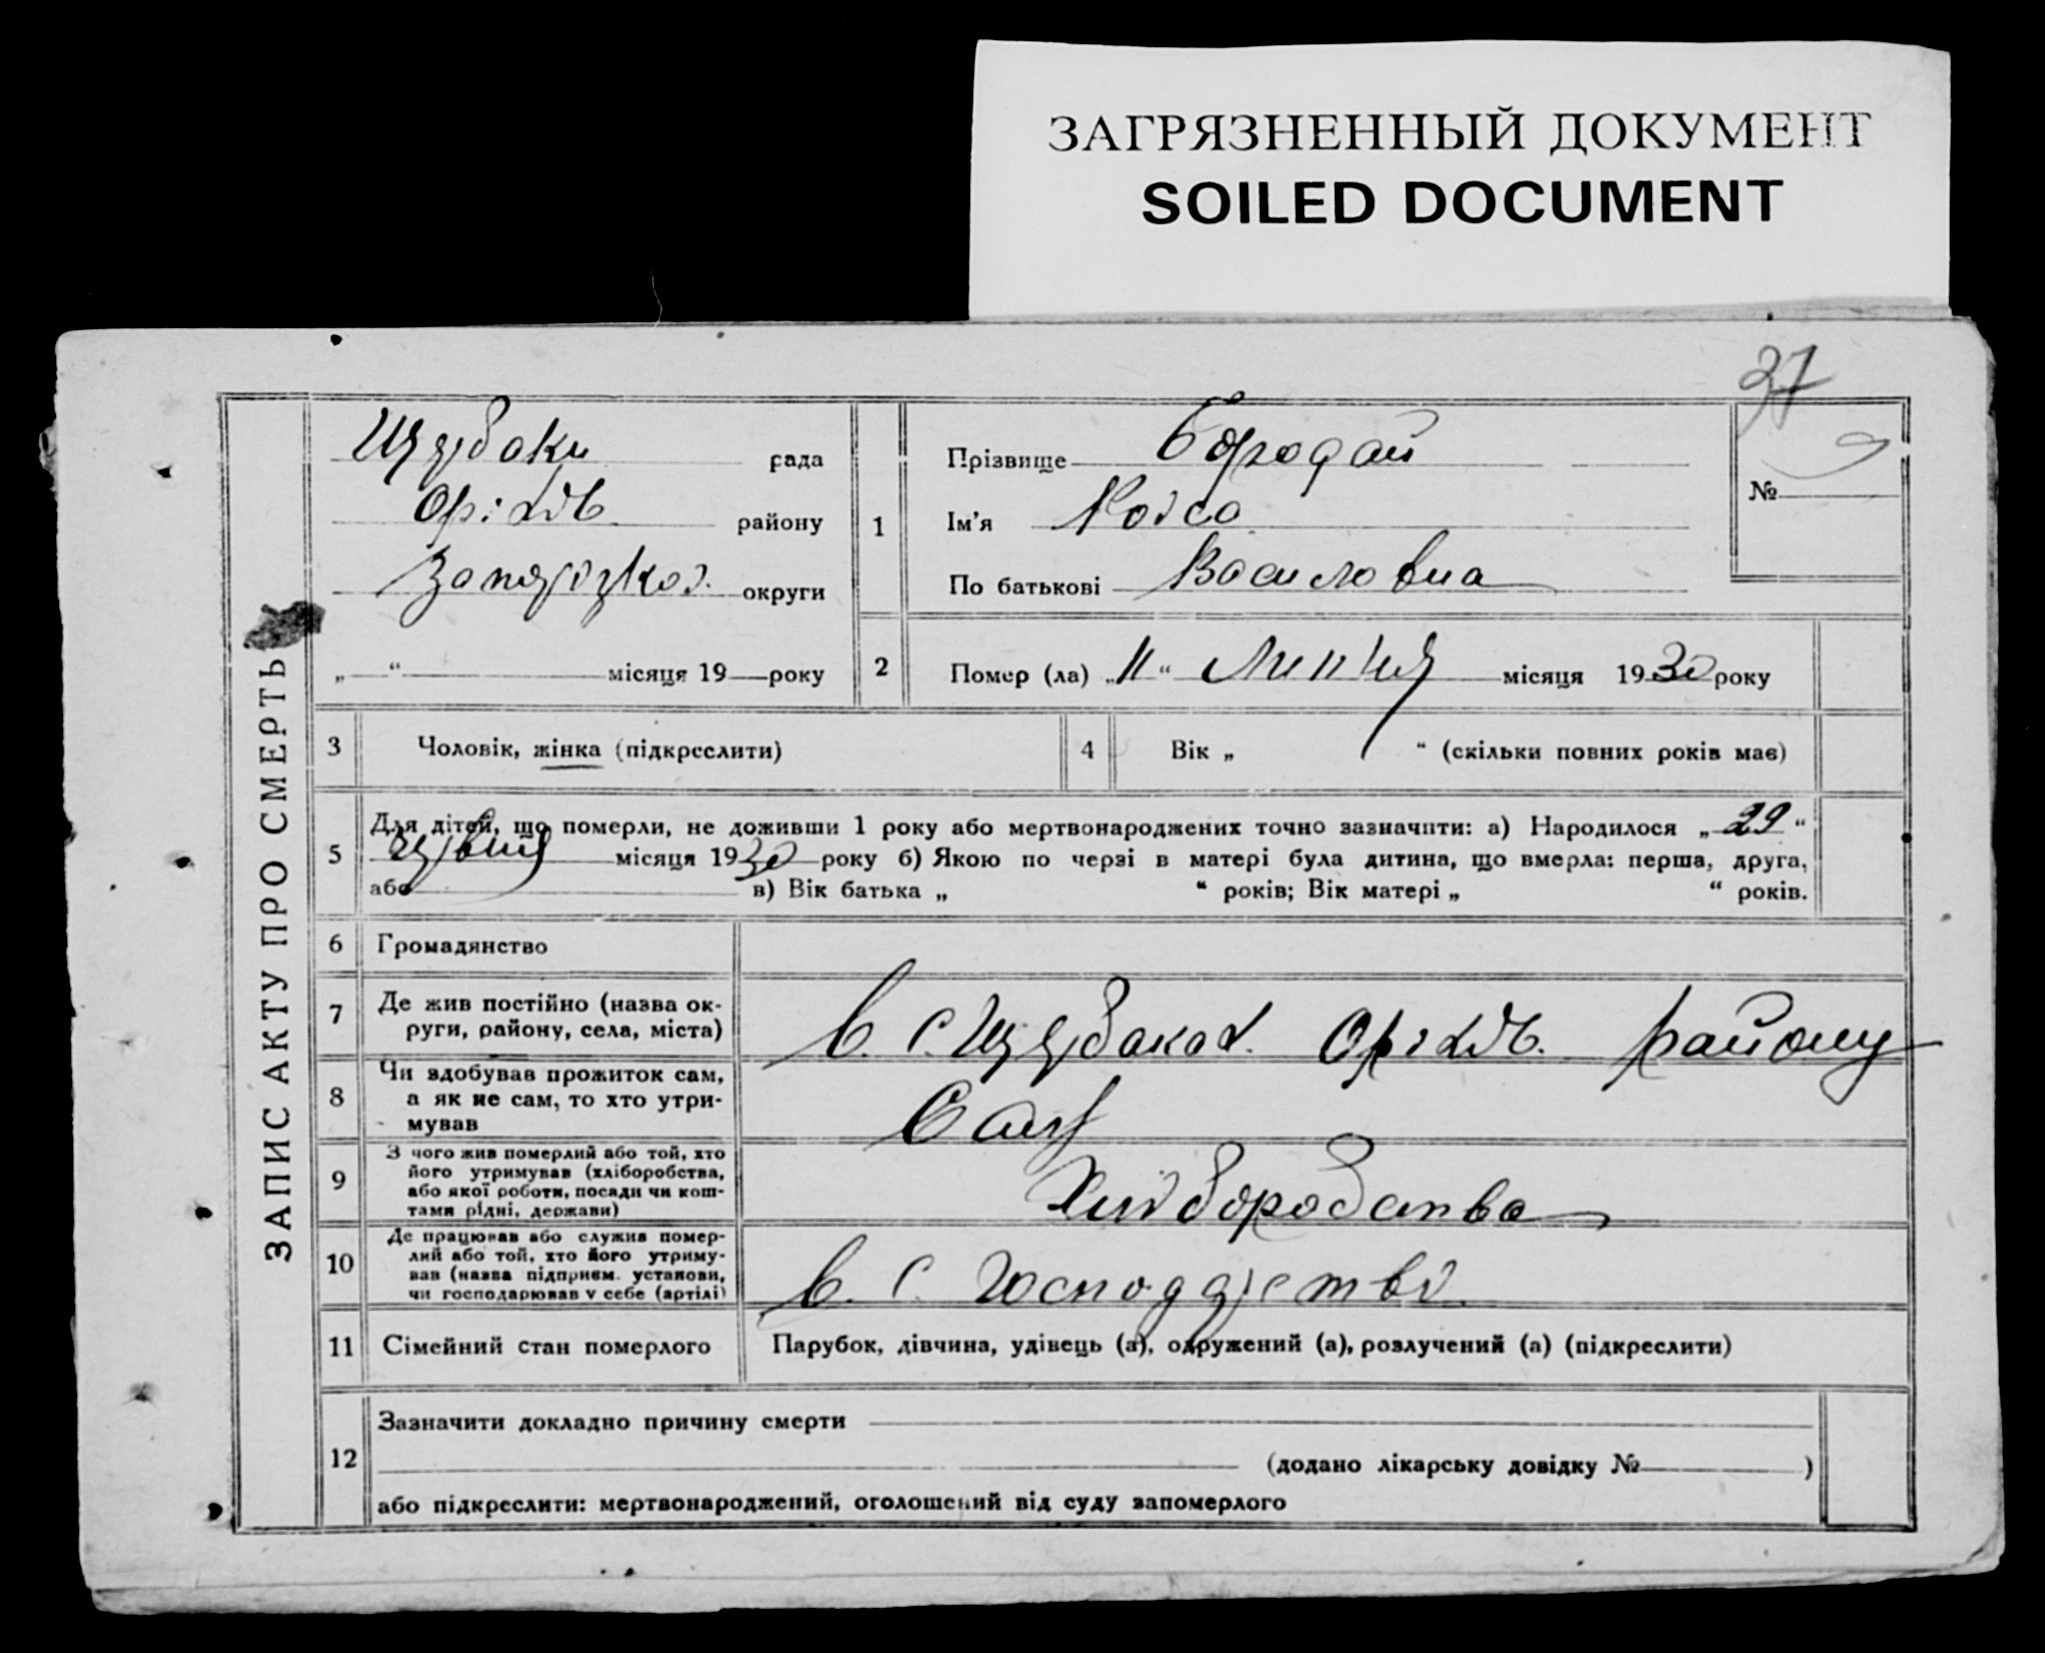 ЗАГРЯЗНЕННЫЙ ДОКУМЕНТ
SOILED DOCUMENT
37
ЗАПИС АКТУ ПРО СМЕРТЬ
Щербаки рада
Оріхів району
округи
„ “ місяця 19 року
1
Прізвище Бородай
Ім'я
По батькові Василовна
№
2
Помер (ла) „11“ Липня місяця 1930 року
3 Чоловік, жінка (підкреслити)
4 Вік „ “ (скільки повних років має)
5
Для дітей, що померли, не доживши 1 року або мертвонароджених точно зазначити: а) Народилося „29“
Червня місяця 1930 року б) Якою по черзі в матері була дитина, що вмерла: перша, друга,
або в) Вік батька „ “ років; Вік матері „ “ років.
6 Громадянство
7 Де жив постійно (назва ок-
руги, району, села, міста)
В. С. Щербаках Оріхів. району
8 Чи здобував прожиток сам,
а як не сам, то хто утри-
мував
Сам
9 З чого жив померлий або той, хто
його утримував (хліборобства,
або якої роботи, посади чи кош-
тами рідні, держави)
Хліборобства
10 Де працював або служив помер-
лий або той, хто його утриму-
вав (назва підприєм. установи,
чи господарював у себе (артілі)
В. С. Господарстві
11 Сімейний стан померлого
Парубок, дівчина, удівець (а), одружений (а), розлучений (а) (підкреслити)
12
Зазначити докладно причину смерти
(додано лікарську довідку № )
або підкреслити: мертвонароджений, оголошений від суду запомерлого